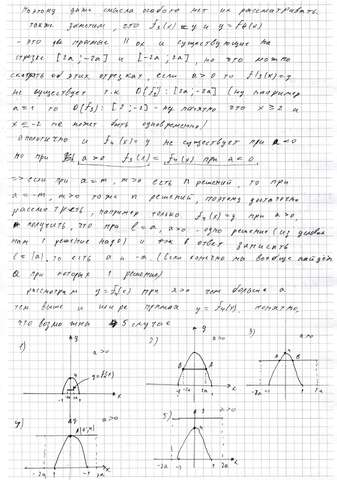 Поэтому даже смысла особого нет их рассматривать.
также заметим, что f₃(x) = y и y = f₄(x)
- это две прямые || ox и существующие на
отрезке [2a; -2a] и [-2a; 2a], но что можно
об этих отрезках, если a > 0 то f₃(x) = y
не существует т.к. D(f₃): [2a; -2a] (ну например
a = 1 то D(f₃): [2; -2] - ну понятно что x ≥ 2 и
x ≤ -2 не может быть одновременно)
Аналогично и f₄(x) = y не существует при a < 0
но при a > 0 f₃(x) = f₄(x) при a < 0.
=> если при a = m, m > 0 есть n решений, то при
a = -m, m > 0 тоже n решений, поэтому достаточно
рассмотреть, например только f₄(x) = y при a > 0,
получить, что при a > 0 - одно решение (из условия
нам 1 решение надо) и так в ответ записать
то есть a и -a. (если конечно мы вообще найдём
a при которых 1 решение)
рассмотрим y = f₄(x) при a > 0 чем больше a
тем выше и шире прямая y = f₄(x). понятно,
что возможны 5 случаев
1) y a > 0 x
2) y a > 0 A B -2a 2a x
3) a > 0 A B -2a 2a x
4) y a > 0 -2a -1 1 2a x
5) y a > 0 -2a -1 1 2a x